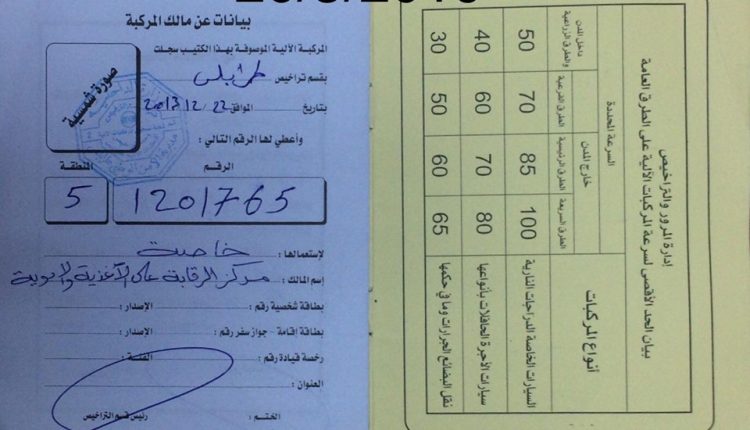 بيانات عن مالك المركبة
المركبة الآلية الموصوفة بهذا الكتيب سجلت
بقسم تراخيص : طرابلس
بتاريخ : الموافق 22 / 12 / 2013
وأعطي لها الرقم التالي :
صورة شمسية
الرقم المنطقة
1201765 5
لإستعمالها : خاصة
إسم المالك : مركز الرقابة على الأغذية والادوية
بطاقة شخصية رقم : الإصدار :
بطاقة إقامة - جواز سفر رقم : الإصدار :
رخصة قيادة رقم : الفئة :
العنوان :
الختم : رئيس قسم التراخيص
إدارة المرور والتراخيص
بيان الحد الأقصى لسرعة المركبات الآلية على الطرق العامة
أنواع المركبات
السرعة المحددة
خارج المدن
داخل المدن والطرق الزراعية
الطرق السريعة
الطرق الرئيسية
الطرق الفرعية
السيارات الخاصة الدراجات النارية
100 85 70 50
سيارات الأجرة الحافلات بأنواعها
80 70 60 40
نقل البضائع الجرارات وما في حكمها
65 60 50 30